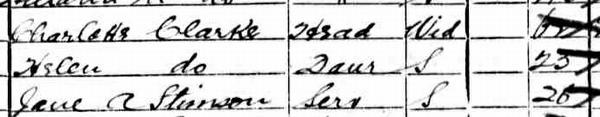 Charlotte Clarke Head Wid
Helen do Daur S 23
Jane R Stimson Serv S 26